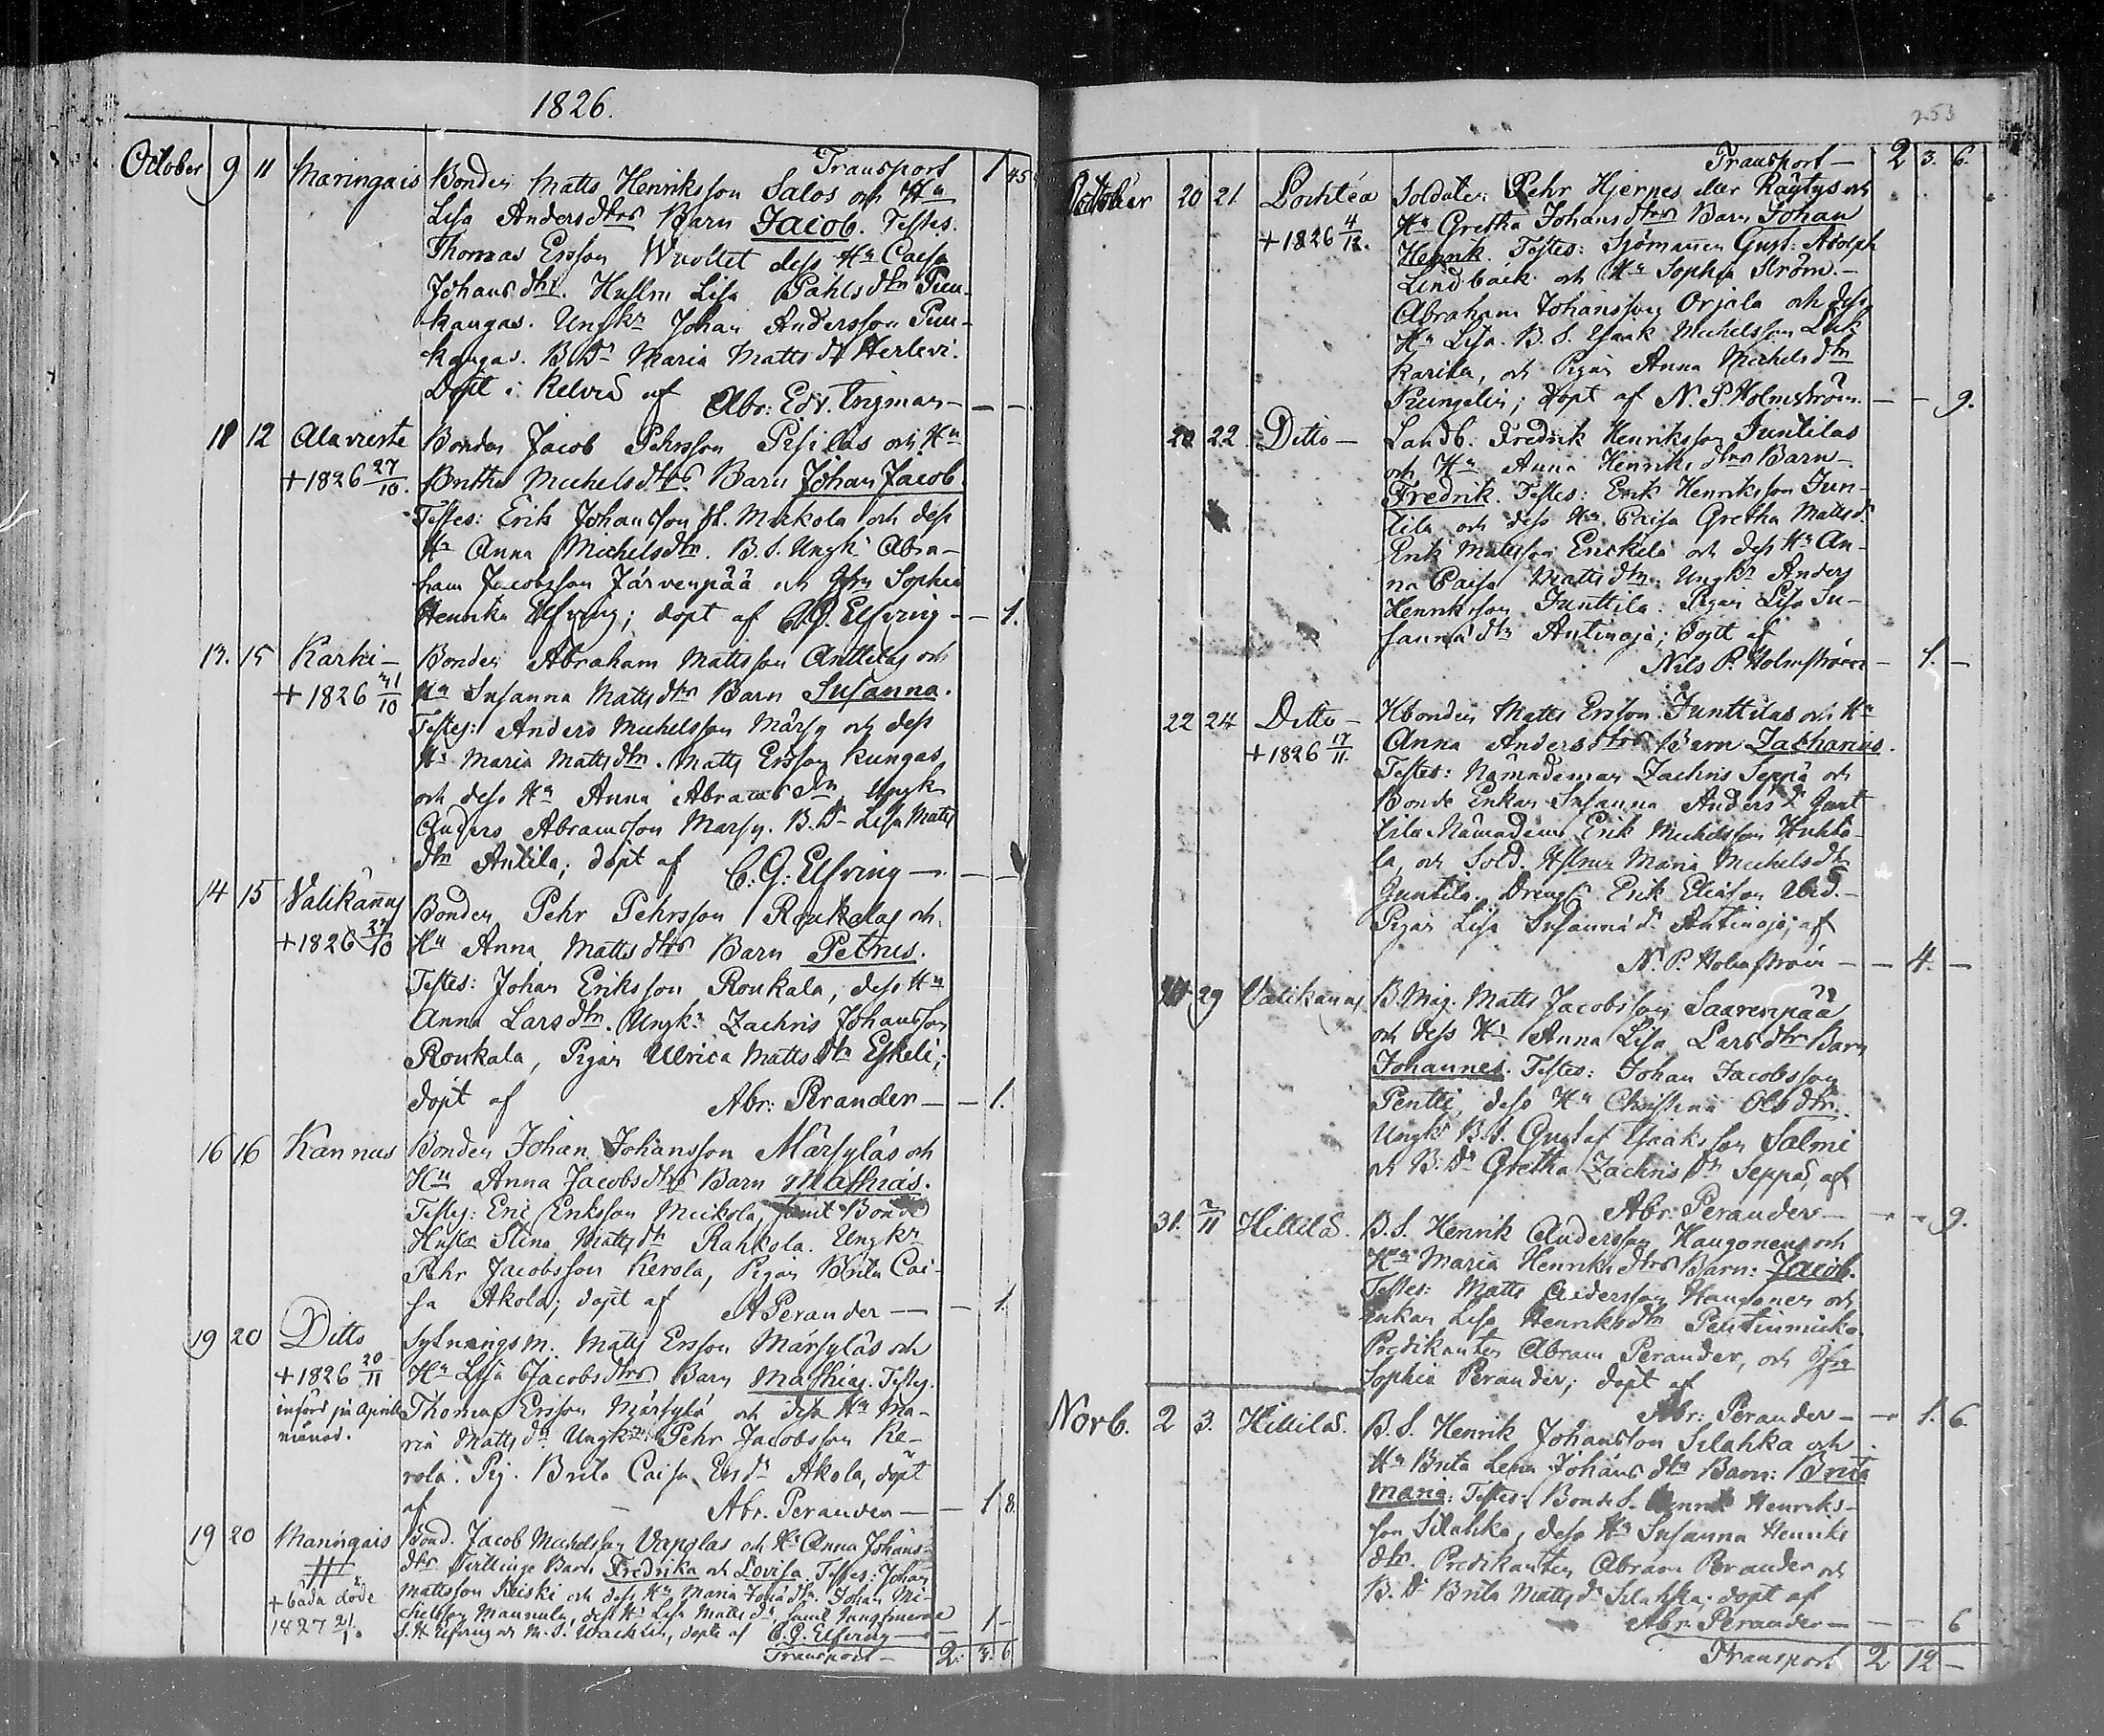 1826.
Transport 1 45
October 9 11 Maringais Bonden Matts Henriksson Salos och Hu
Lisa Andersdtrs Barn Jacob. Testes.
Thomas Ersson Wuoltet dess Hu Caisa
Johansdtr. Hustrn Lisa Påhlsdtr Puu-
kangas. Ungkn Johan Andersson Puu-
kangas. B. Dr Maria Matts dr Herlevi.
Döpt i Kelviå af Abr: Edv. Ingman — — —
11 12 Alavieste Bonden Jacob Pehrsson Pisilas och Hu
+ 1826 27/10. Britha Michelsdtrs Barn Johan Jacob.
Testes: Erik Johansson Mickola och dess
Hu Anna Michelsdtr. B. S. Ungk Abra-
ham Jacobsson Järvenpää och Jfrn Sophia
Henrika Elfving; döpt af C. G. Elfving — — 1.
13. 15 Karhi — Bonden Abraham Mattsson Anttilas och
+ 1826 31/10 Hu Susanna Mattsdtrs Barn Susanna.
Testes: Anders Michelsson Märsy och dess
Hu Maria Mattsdtr. Matts Ersson Kungas
och dess Hu Anna Abramsdtr, Ungk
Anders Abramsson Marsy. B. Dr Lisa Matts
dtr Antila; döpt af C: G: Elfving — —
14 15 Välikannus Bonden Pehr Pehrsson Roukalas och
+ 1826 27/10 Hu Anna Mattsdtrs Barn Petrus.
Testes: Johan Eriksson Roukala, dess Hu
Anna Larsdtr. Ungk: Zachris Johansson
Roukala, Pigan Ulrica Mattsdtr Eskeli;
döpt af Abr: Perander — — 1.
16 16 Kannus Bonden Johan Johansson Märsyläs och
Hu Anna Jacobsdtrs Barn Mathias.
Testes: Eric Eriksson Mickola, samt Bonde
Hustr Stina Mattsdtr Rahkola. Ungkn
Pehr Jacobsson Kerola, Pigan Brita Cai-
sa Akola; döpt af A Perander — — 1.
19 20 Ditto Sytningsm. Matts Ersson Märsyläs och
+ 1826 20/11 Hu Lisa Jacobsdtrs Barn Mathias. Testes.
införd på Aprill Thomas Ersson Märsylä och dess Hu Ma-
månad. ria Mattsdr Ungkn Pehr Jacobsson Ke-
rola. Pig. Brita Caisa Ersdr Akola, döpt
af Abr. Perander — — 1 8
19 20 Maringais Bond. Jacob Michelsson Vapolas och Hu Anna Johans-
dtrs Tvillinge Barn Fredrika och Lovisa. Testes: Johan
+ båda döde Mattsson Kleiski och dess Hu Maria Johsdtr. Johan Mi-
1827 21/1. chelsson Mannula, dess Hu Lisa Mattsdr, samt Jungfruerna 1 -
S. H. Elfving och M. S. Wacklin, döpte af C. G. Elfving —
Transport — 2. 3. 6
253
Transport — 2 3. 6.
October 20 21 Lochtea Soldaten Pehr Hjernes eller Räytys och
+ 1826 4/12. Hu Gretha Johansdtrs Barn Johan
Henrik. Testes: Sjömannen Gust: Adolph
Lindbäck och Hu Sophia Ström. —
Abraham Johansson Orjala och dess
Hu Lisa. B. S. Isaak Michelsson Luk
karila, och Pigan Anna Michelsdtr
döpt af N. P. Holmström. — — 9.
20 22 Ditto — Landb: Fredrik Henriksson Juntilas
och Hu Anna Henriksdtrs Barn —
Fredrik. Testes: Erik Henriksson Jun-
tila och dess Hu Caisa Gretha Mattsdr
Erik Mattsson Enckelä och dess Hu An-
na Caisa Mattsdtr. Ungkn Anders
Henriksson Junttila. Pigan Lisa Su-
sannadtr Antinoja; Döpt af
Nils P. Holmström — 1. —
22 24 Ditto — Hbonden Matts Ersson Junttilas och Hu
+ 1826 17/11. Anna Andersdtrs Barn Zacharias.
Testes: Nämndeman Zachris Seppä och
Bonde Enkan Susanna Andersdr Junt
tila Nämndem Erik Michelsson Huhta-
la, och Sold. Hustrun Maria Michelsdtr
Juntila. Dreng Erik Eliasson ibid. —
Pigan Lisa Susannadr Antinoja; af
N. P. Holmström — — 4. —
29 Välikannus B. Måg. Matts Jacobsson Saarenpää
och dess Hu Anna Lisa Larsdtrs Barn
Johannes. Testes: Johan Jacobsson
Pentti, dess Hu Christina Olsdtr.
Ungk B. S. Gustaf Isaksson Salmi
och B: Dr Gretha Zachrisdr Seppä, af
Abr. Perander — — — 9.
31. 2/11 Hillilä. B. S. Henrik Andersson Haugonens och
Hu Maria Henriksdtrs Barn: Jacob.
Testes: Matts Andersson Haugonen och
Enkan Lisa Henriksdtr Penttinmicko
Predikanten Abram Perander, och Jfrn
Sophia Perander; döpt af
Abr: Perander — — 1. 6.
Novb. 2 3. Hillilä. B. S. Henrik Johansson Silahka och
Hu Brita Lena Johansdtrs Barn: Brita
Maria: Testes: Bonde S. Henrik Henriks-
son Silahka, dess Hu Susanna Henriks
dtr. Predikanten Abram Perander och
B. Dr Brita Mattsdr Silahka, döpt af
Abr. Perander — — — 6
Transport 2 12 —